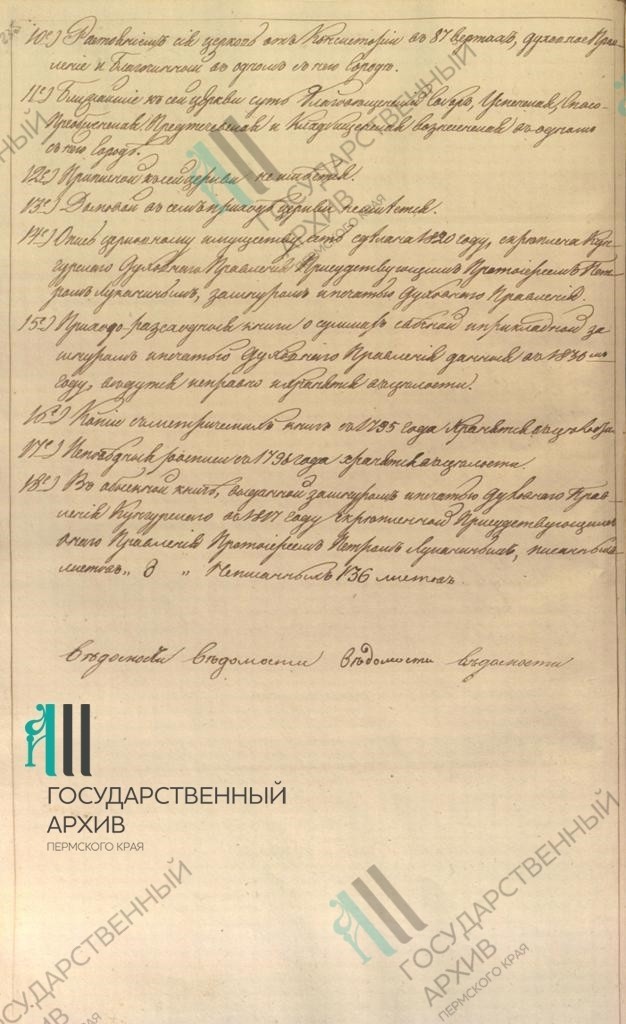 10е) Разстояніемъ сія церковь отъ Консисторіи въ 87 верстахъ, Духовное Прав-
леніе и Благочинный въ одномъ съ нею городѣ.
11е) Ближайшіе къ сей церкви суть Благовещенскій Соборъ, Успенская, Спасо-
Преображенская, Предтеченская и Кладбищенская Вознесенская въ одномъ
съ нею городѣ.
12е) Приписной къ сей церкви не имѣется.
13е) Домовой въ семъ приходѣ церкви не имѣется.
14е) Опись церковному имуществу есть сдѣлана 1820 году, скрѣплена Кун-
гурскаго Духовнаго Правленія Присудствующимъ Протоіереемъ Пет-
ромъ Луканинымъ, за шнуромъ и печатью Духовнаго Правленія.
15е) Приходо-расходныя книги о суммахъ свѣчной и прикладной за
шнуромъ и печатью Духовнаго Правленія данныя въ 1830 мъ
году, ведутся исправно и хранятся въ цѣлости.
16е) Копіи съ метрическихъ книгъ съ 1795 года хранятся въ
17е) Исповѣдныя росписи съ 1796 года хранятся въ цѣлости.
18е) Въ обыскной книгѣ, выданной за шнуромъ и печатью Духовнаго Прав-
ленія Кунгурскаго въ 1827 году скрѣпленной Присудствующимъ
онаго Правленія Протоіереемъ Петромъ Луканинымъ, писанныхъ
листовъ „ 8 „ Неписанныхъ 136 листовъ.
вѣдомости вѣдомости вѣдомости
ГОСУДАРСТВЕННЫЙ
АРХИВ
ПЕРМСКОГО КРАЯ